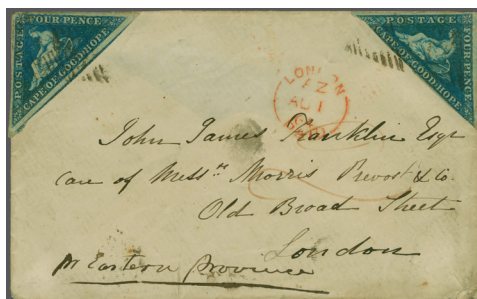 POSTAGE FOUR PENCE CAPE OF GOOD HOPE
POSTAGE FOUR PENCE CAPE OF GOOD HOPE
LONDON
AZ
AU 1
John James Franklin Esqr
care of Messrs Morris Prevost & Co.
Old Broad Street
London
pr Eastern Province